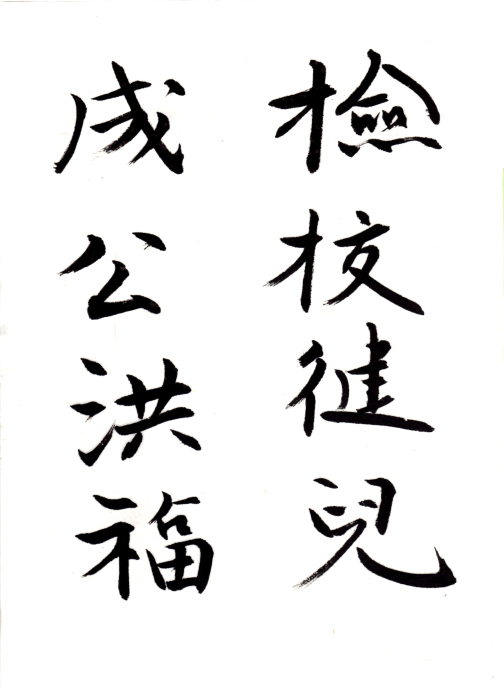 檢校健兒
成公洪福